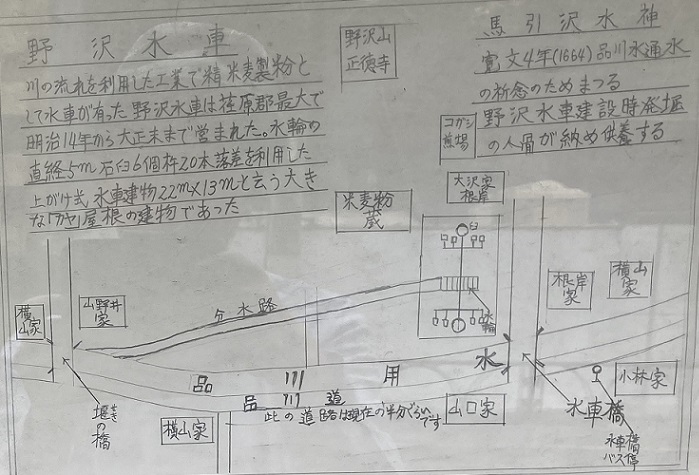 野沢水車
川の流れを利用した工業で精米麦製粉と
して水車が有った 野沢水車は荏原郡最大で
明治14年から大正末まで営まれた。水輪の
直経5m石臼6個杵20本落差を利用した
上がけ式 水車建物22m×13mと云う大き
なカヤ屋根の建物であった
野沢山
正徳寺
馬引沢水神
寛文4年(1664)品川永通水
の祈念のためまつる
野沢水車建設時発堀
の人骨が納め供養する
コガシ
墓場
大沢家
根岸
米麦粉
蔵
臼
水輪
分水路
横山家
山野井
家
根岸
家
横山
家
品川用水
品川道
此の道路は現在の半分ぐらい
です
山口家
小林家
横山家
堰の橋
水車橋
水車橋
バス停